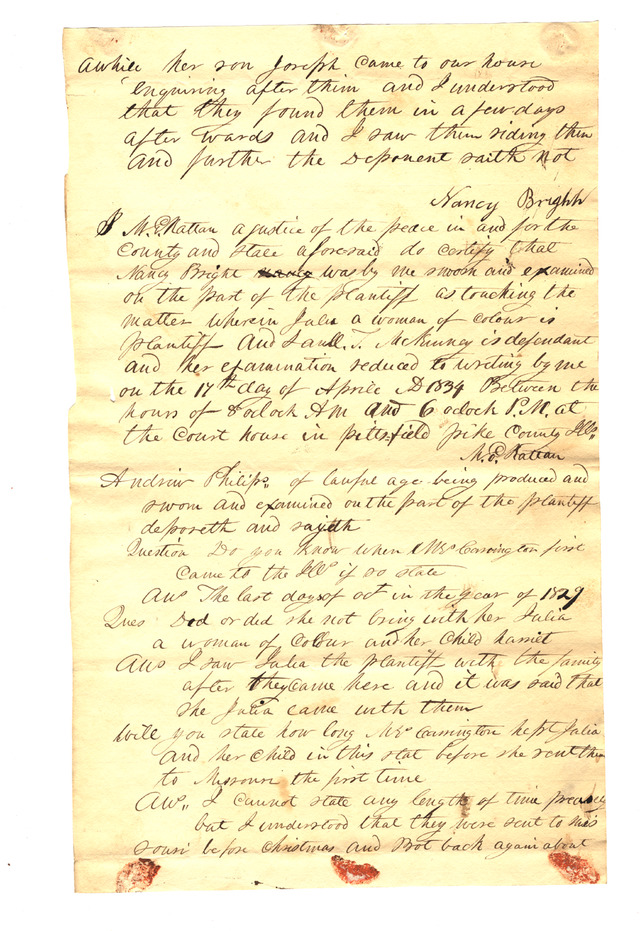 awhile her son Joseph came to our house
enquiring after them and I understood
that they found them in a few days
after wards and I saw them riding them
and further the Deponent saith not
Nancy Bright
I M. E. Rattan a justice of the peace in and for the
County and state aforesaid do certify that
Nancy Bright was by me sworn and examined
on the part of the plantiff as touching the
matter wherein Julia a woman of colour is
plantiff and Saml. T. McKinney is defendant
and her examination reduced to writing by me
on the 17th day of Aprile AD 1834 Between the
hours of 8 oclock AM and 6 oclock P.M. at
the court house in pittsfield pike County Ills
M. E. Rattan
Andrew Philips of lauful age being produced and
sworn and examined on the part of the plantiff
deposeth and sayeth
Question Do you know when Mrs Carrington first
came to the Ills if so state
Ans The last days of Oct in the year of 1829
Ques Did or did she not bring with her Julia
a woman of Colour and her child harriet
Ans I saw Julia the plantiff with the family
after they came here and it was said that
she Julia came with them
Will you state how long Mrs Carrington kept Julia
and her child in this stat before she sent them
to Missouri the first time
Ans,, I cannot state any length of time precisely
but I understood that they were sent to Mis
souri before christmas and Brot back again about